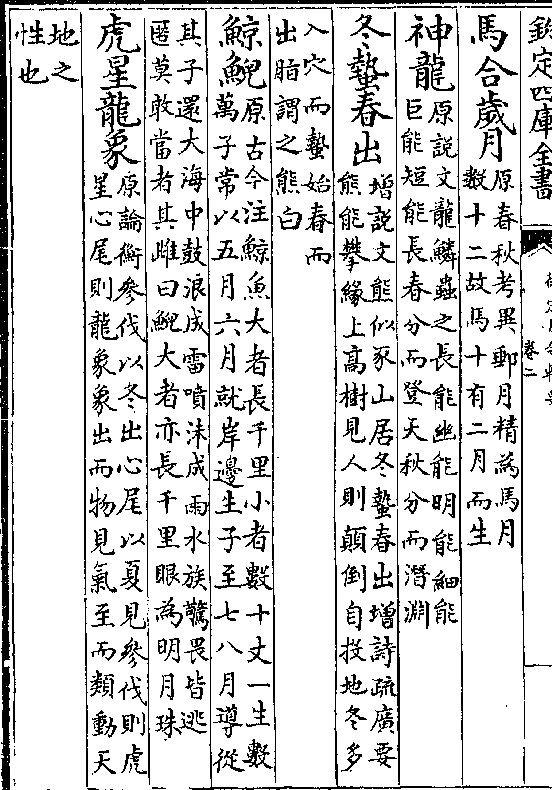 欽定四庫全書
卷二
馬合歲月
原春秋考異郵月精為馬月
數十二故馬十有二月而生
神龍
原説文龍鱗蟲之長能幽能明能細能
巨能短能長春分而登天秋分而潛淵
冬蟄春出
增説文熊似豕山居冬蟄春出增詩疏廣要
熊能攀緣上高樹見人則顛倒自投地冬多
入穴而蟄始春而
出脂謂之熊白
鯨鯢
原古今注鯨魚大者長千里小者數十丈一生數
萬子常以五月六月就岸邊生子至七八月導從
其子還大海中鼓浪成雷噴沫成雨水族驚畏皆逃
匿莫敢當者其雌曰鯢大者亦長千里眼為明月珠
虎星龍象
原論衡參伐以冬出心尾以夏見參伐則虎
星心尾則龍象象出而物見氣至而類動天
地之
性也